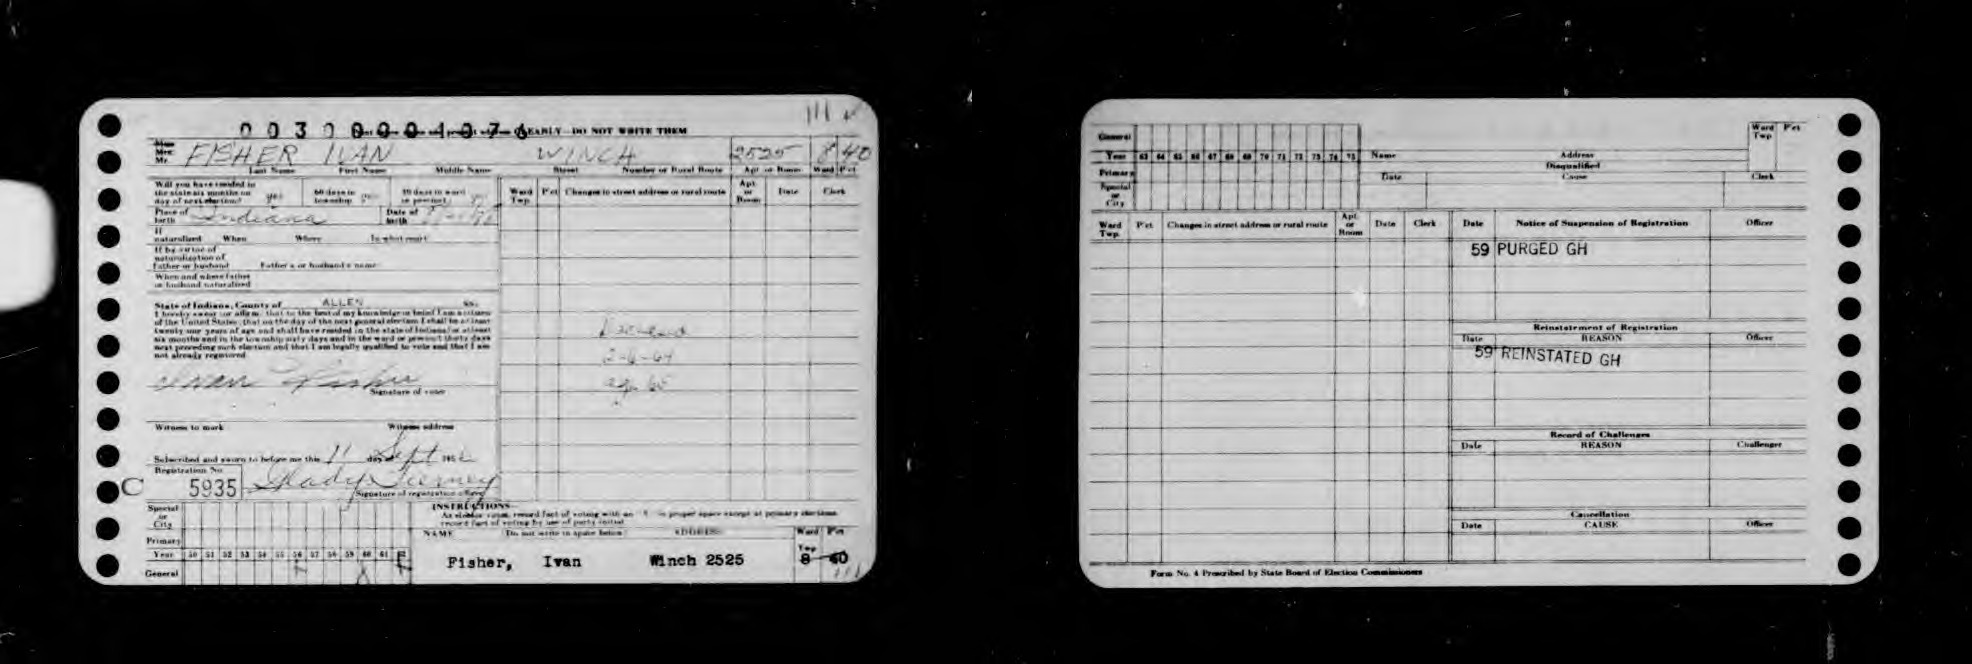 111 ✓
EARLY - DO NOT WRITE THEM
Mrs.
Mr. FISHER IVAN WINCH 2525 8 40
Last Name First Name Middle Name Street Number or Rural Route Apt. or Room Ward P'ct
Will you have resided in the state six months on day of next election? yes 60 days in township 30 days in ward or precinct
Place of birth Indiana Date of birth
If naturalized When Where In what court
If by virtue of naturalization of Father or husband Father's or husband's name
When and where father or husband naturalized
State of Indiana, County of ALLEN ss.
I hereby swear (or affirm) that to the best of my knowledge or belief I am a citizen
of the United States, that on the day of the next general election I shall be at least
twenty-one years of age and shall have resided in the state of Indiana for at least
six months and in the township sixty days and in the ward or precinct thirty days
next preceding such election and that I am legally qualified to vote and that I am
not already registered
Ivan Fisher
Signature of voter
Witness to mark Witness address
Subscribed and sworn to before me this 11 day Sept
Registration No.
C 5935
Signature of registration officer
Ward Twp. P'ct Changes in street address or rural route Apt. or Room Date Clerk
Deceased
2-6-64
age 65
Special or City
Primary
Year 50 51 52 53 54 55 56 57 58 59 60 61
General
INSTRUCTIONS
record fact of voting with an in proper space except at primary elections,
record fact of voting by use of party initial
NAME (Do not write in space below) ADDRESS Ward Twp P'ct
Fisher, Ivan Winch 2525 8 40
General
Year 63 64 65 66 67 68 69 70 71 72 73 74 75
Primary
Special or City
Name Address Ward Twp P'ct
Disqualified
Date Cause Clerk
Ward Twp. P'ct Changes in street address or rural route Apt. or Room Date Clerk
Date Notice of Suspension of Registration Officer
59 PURGED GH
Reinstatement of Registration
Date REASON Officer
59 REINSTATED GH
Record of Challenges
Date REASON Challenger
Cancellation
Date CAUSE Officer
Form No. 4 Prescribed by State Board of Election Commissioners